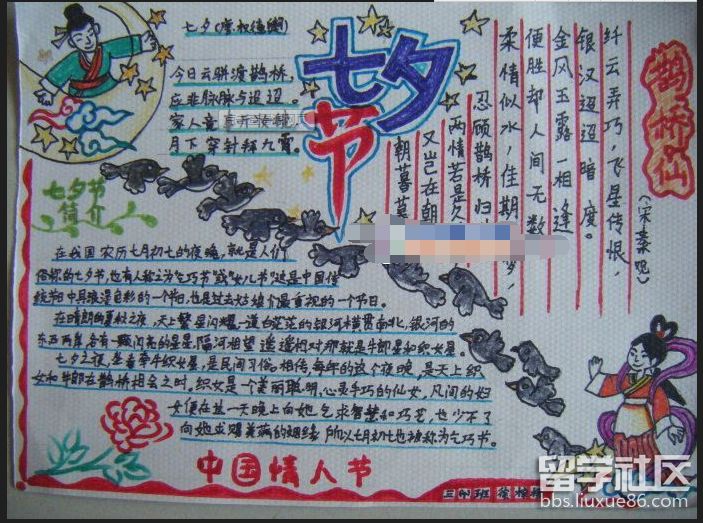 七夕(唐.权德舆)
今日云骈渡鹊桥,
应非脉脉与迢迢。
家人竟
月下穿针拜九霄。
七夕节
鹊桥仙
(宋秦观)
纤云弄巧,飞星传恨,
银汉迢迢暗度。
金风玉露一相逢
便胜却人间无数
柔情似水,佳期梦,
忍顾鹊桥归
两情若是久
又岂在朝
朝暮
七夕节
简介
在我国农历七月初七的夜晚,就是人们
俗称的七夕节,也有人称之为乞巧节或"女儿节"这是中国传
统节日中具浪漫色彩的一个节日,也是过去姑娘们最重视的一个节日。
在晴朗的夏秋之夜,天上繁星闪耀一道白茫茫的银河横贯南北,银河的
东西两岸,各有一颗闪亮的星星,隔河相望遥遥相对那就是牛郎星和织女星。
七夕之夜,坐看牵牛织女星,是民间习俗。相传,每年的这个夜晚,是天上织
女和牛郎在鹊桥相会之时。织女是一个美丽聪明,心灵手巧的仙女,凡间的妇
女便在这一天晚上向她乞求智慧和巧艺,也少不了
向她求赐美满的姻缘,所以七月初七也被称为乞巧节。
中国情人节
班
留学社区
bbs.liuxue86.com